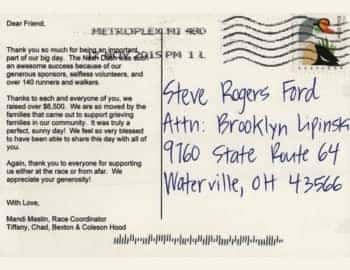 Dear Friend,
METROPLEX MI 480
Thank you so much for being an important
part of our big day. The Nash Dash was such
an awesome success because of our
generous sponsors, selfless volunteers, and
over 140 runners and walkers.
NOV 2015 PM 1 L
Thanks to each and everyone of you, we
raised over $6,500. We are so moved by the
families that came out to support grieving
families in our community. It was truly a
perfect, sunny day! We feel so very blessed
to have been able to share this day with all of
you.
Again, thank you to everyone for supporting
us either at the race or from afar. We
appreciate your generosity!
With Love,
Mandi Mastin, Race Coordinator
Tiffany, Chad, Bexton & Coleson Hood
Steve Rogers Ford
Attn: Brooklyn Lipinski
9760 State Route 64
Waterville, OH 43566